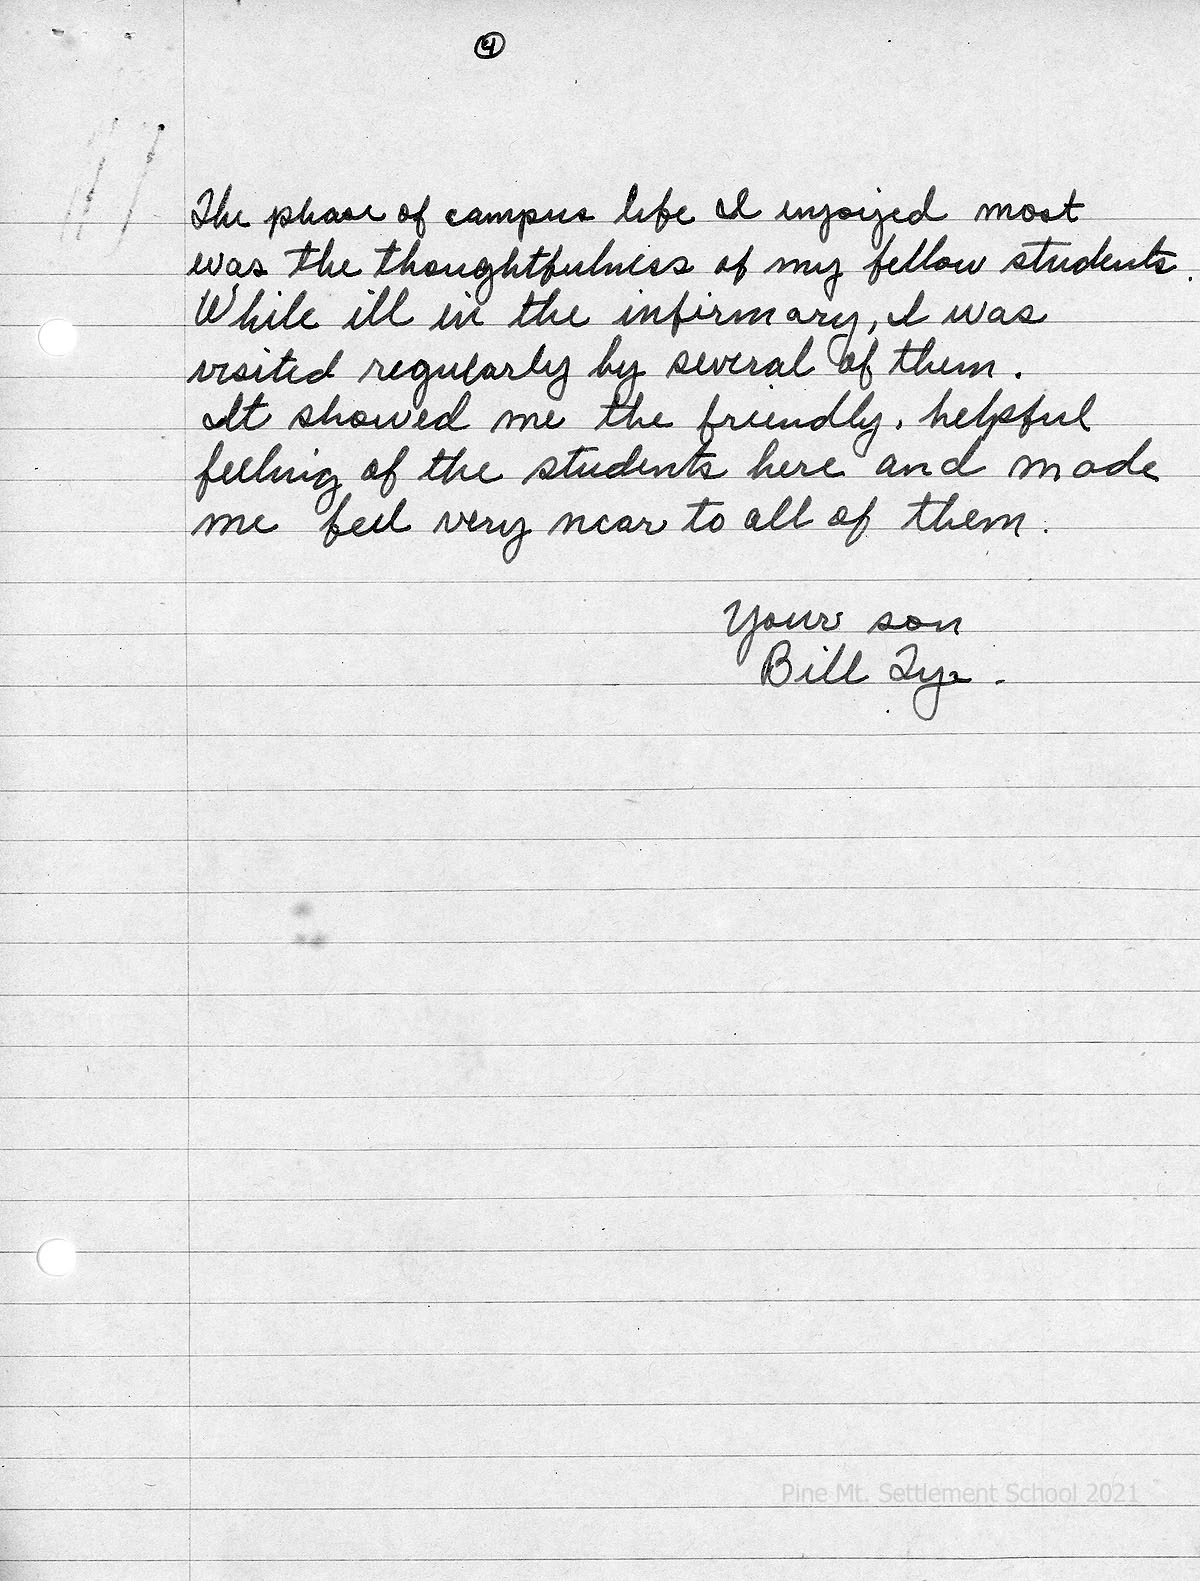 4
The phase of campus life I enjoyed most
was the thoughtfulness of my fellow students.
While ill in the infirmary, I was
visited regularly by several of them.
It showed me the friendly, helpful
feeling of the students here and made
me feel very near to all of them.
Your son
Bill
Pine Mt. Settlement School 2021